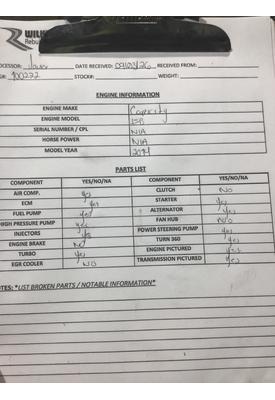 WIL
Rebu
DATE RECEIVED: 09/03/26 RECEIVED FROM:
100222 STOCK#: WEIGHT:
ENGINE INFORMATION
ENGINE MAKE Capacity
ENGINE MODEL ISB
SERIAL NUMBER / CPL N/A
HORSE POWER N/A
MODEL YEAR 2014
PARTS LIST
COMPONENT YES/NO/NA COMPONENT YES/NO/NA
AIR COMP. yes CLUTCH NO
ECM yes STARTER yes
FUEL PUMP yes ALTERNATOR yes
HIGH PRESSURE PUMP yes FAN HUB NO
INJECTORS yes POWER STEERING PUMP yes
ENGINE BRAKE NO TURN 360 yes
TURBO yes ENGINE PICTURED yes
EGR COOLER NO TRANSMISSION PICTURED yes
OTES: *LIST BROKEN PARTS / NOTABLE INFORMATION*